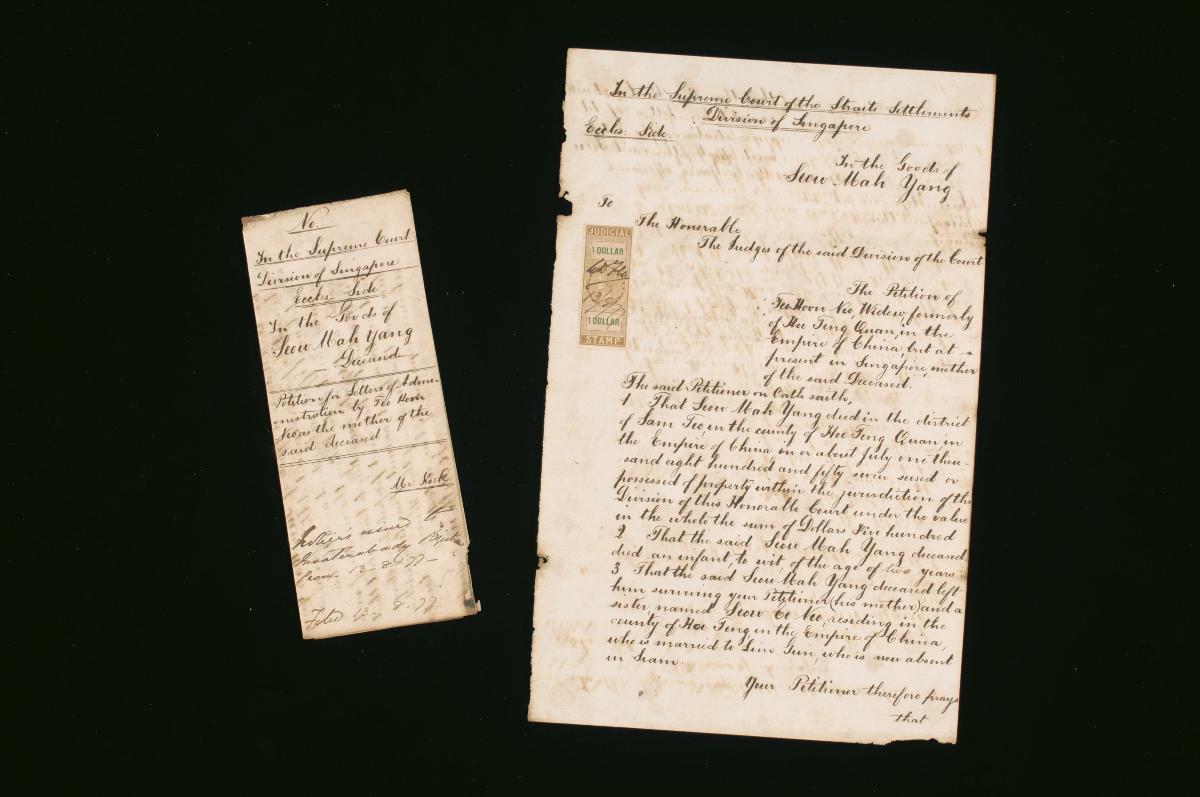 No.
In the Supreme Court
Division of Singapore
Eccles: Side
In the Goods of
Seow Mah Yang
Deceased
Petition for Letters of Admi-
-nistration by Teo Hoon
Neo as the mother of the
said deceased
Mr. Kock
to
13-8-77-
Filed 13-8.77.
In the Supreme Court of the Straits Settlements
Division of Singapore
Eccles: Side.
In the Goods of
Seow Mah Yang
To
The Honorable
The Judges of the said Division of the Court
JUDICIAL
1 DOLLAR
13/8/77
1 DOLLAR
STAMP
The Petition of
Teo Hoon Neo, Widow, formerly
of Hoe Teng Quan, in the
Empire of China, but at
present in Singapore, mother
of the said Deceased.
The said Petitioner on Oath saith,
1 That Seow Mah Yang died in the district
of Sam Teo, in the county of Hoe Teng Quan in
the Empire of China on or about July one thou-
-sand eight hundred and fifty seven seised or
possessed of property within the jurisdiction of the
Division of this Honorable Court under the value
in the whole the sum of Dollars Five hundred
2 That the said Seow Mah Yang deceased
died an infant, to wit, of the age of two years
3 That the said Seow Mah Yang deceased left
him surviving your Petitioner (his mother) and a
sister, named Seow Ee Neo, residing in the
county of Hoe Teng in the Empire of China,
who is married to Lim Gun, who is now absent
in Siam.
Your Petitioner therefore prays
that